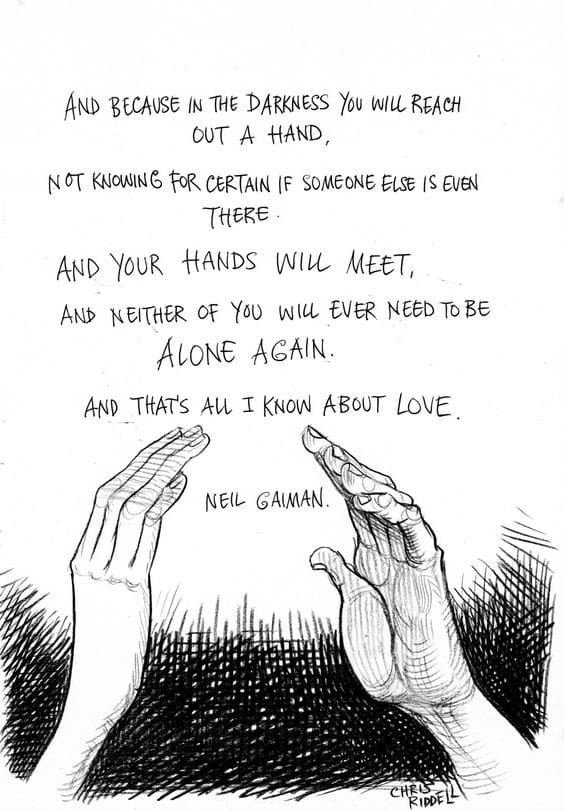 AND BECAUSE IN THE DARKNESS YOU WILL REACH
OUT A HAND,
NOT KNOWING FOR CERTAIN IF SOMEONE ELSE IS EVEN
THERE.
AND YOUR HANDS WILL MEET,
AND NEITHER OF YOU WILL EVER NEED TO BE
ALONE AGAIN.
AND THAT'S ALL I KNOW ABOUT LOVE.
NEIL GAIMAN.
CHRIS
RIDDELL